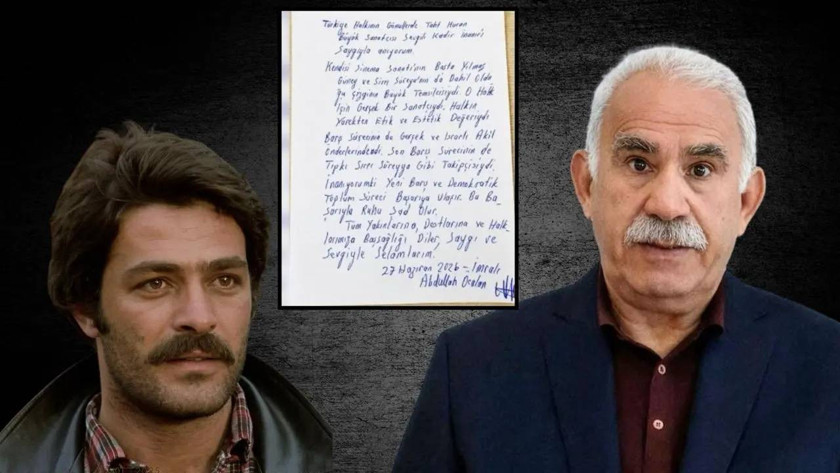 Türkiye Halkının Gönüllerde Taht Kuran
Büyük Sanatçısı Sevgili Kadir İnanır'ı
Saygıyla anıyorum.
Kendisi Sinema Sanatı'nın Başta Yılmaz
Güney ve Sırrı Süreyya'nın da Dahil Oldu
ğu Çizginin Büyük Temsilcisiydi. O Halk
İçin Gerçek Bir Sanatçıydı. Halkın
Yürekten Etik ve Estetik Değeriydi
Barış Sürecinin de Gerçek ve Israrlı Akil
Önderlerindendi. Son Barış Sürecinin de
Tıpkı Sırrı Süreyya Gibi Takipçisiydi.
İnanıyorumki Yeni Barış ve Demokratik
Toplum Süreci Başarıya Ulaşır. Bu Ba
şarıyla Ruhu Şad Olur.
Tüm Yakınlarına, Dostlarına ve Halk-
larımıza Başsağlığı Diler, Saygı ve
Sevgiyle Selamlarım.
27 Haziran 2026 - İmralı
Abdullah Öcalan